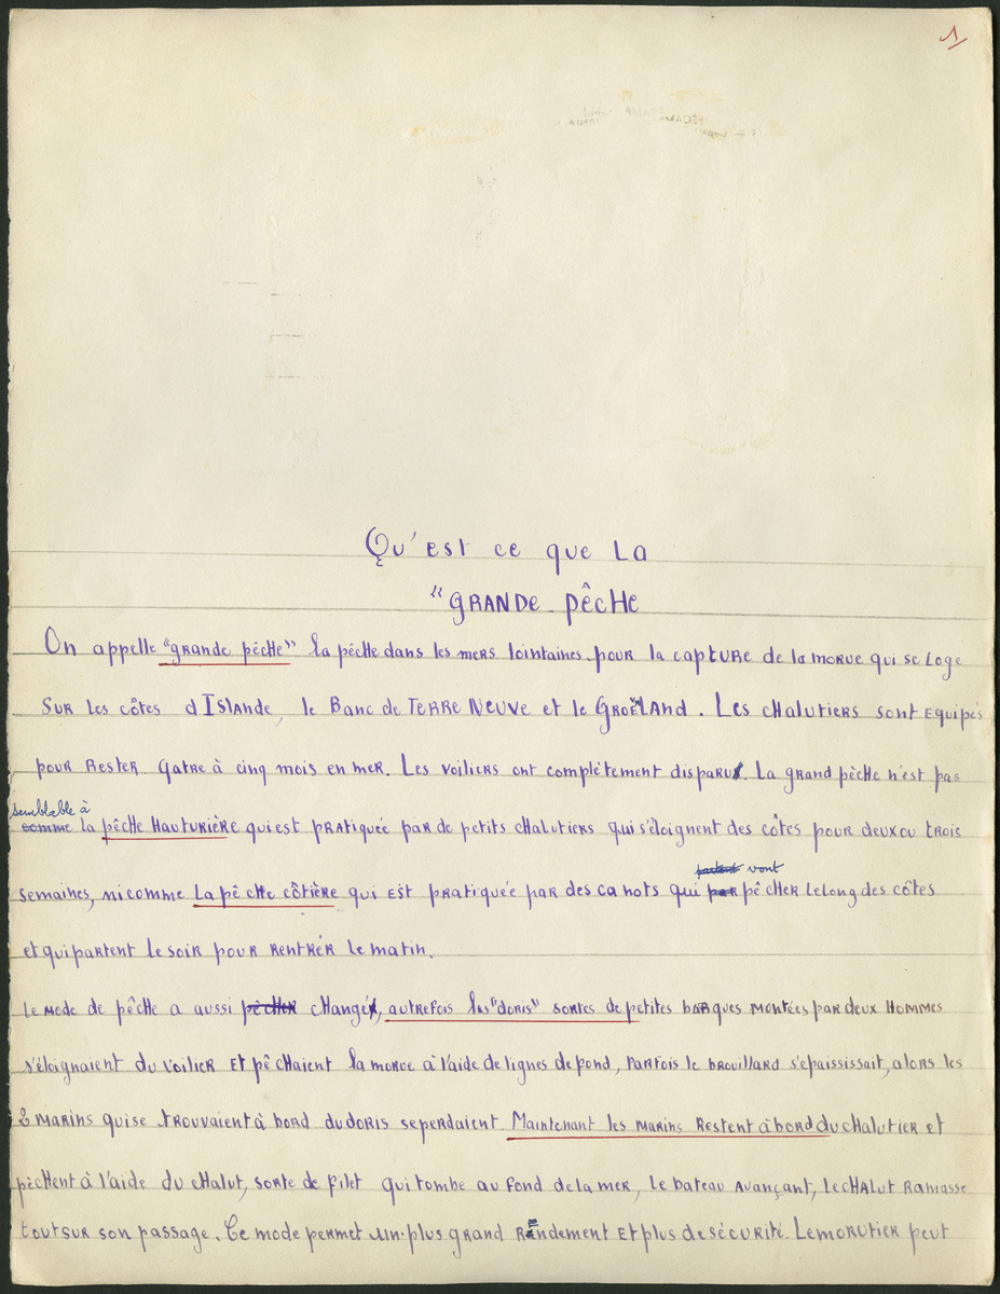 1
Qu'est ce que la
"GRANDE pêche
On appelle "grande pêche" la pêche dans les mers lointaines pour la capture de la morue qui se loge
Sur les côtes d'Islande, le Banc de Terre Neuve et le Groëland. Les chalutiers sont équipés
pour rester qatre à cinq mois en mer. Les voiliers ont complètement disparu. La grand pêche n'est pas
semblable à
comme la pêche hauturière qui est pratiquée par de petits chalutiers qui s'éloignent des côtes pour deux ou trois
vont
semaines, ni comme la pêche côtière qui est pratiquée par des canots qui par pêcher le long des côtes
et qui partent le soir pour rentrer le matin.
Le mode de pêche a aussi pêcher changé, autrefois les "doris" sortes de petites barques montées par deux hommes
s'éloignaient du voilier et pêchaient la morue à l'aide de lignes de fond, parfois le brouillard s'épaississait, alors les
2 marins qui se trouvaient à bord du doris se perdaient Maintenant les marins restent à bord du chalutier et
pêchent à l'aide du chalut, sorte de filet qui tombe au fond de la mer, le bateau avançant, le chalut ramasse
tout sur son passage. Ce mode permet un plus grand rendement et plus de sécurité. Le morutier peut